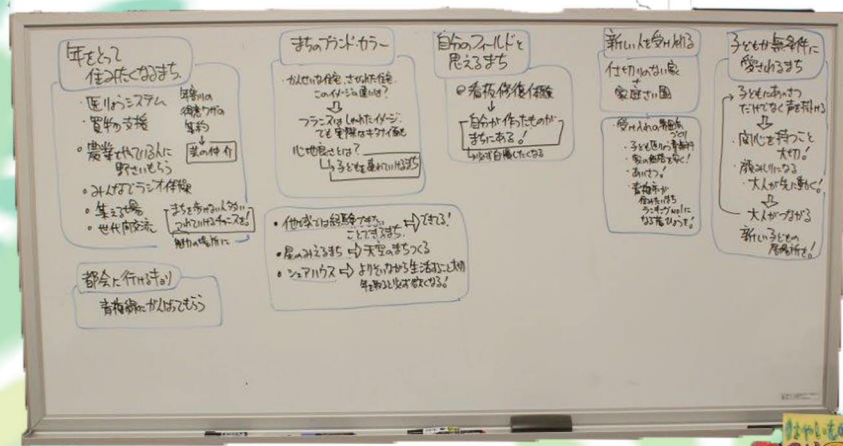 年をとって
住みたくなるまち
・医りょうシステム
・買物の支援
・農業をやっている人に
野さいもらう
・みんなでラジオ体操
・集える場
・世代間交流
年寄りの
集約
まちを歩けない人を
つれていけるチャンスを!
魅力の場所に
都会に行けるキョリ
青梅線にがんばってもらう
まちのブランド・カラー
・かんせいな住宅、さびれた住宅
このイメージの違いは?
フランスはしゃれたイメージ
でも実際はキタナイ面も
心地良さとは?
子どもを連れていけるまち
・他地域では経験できない
ことできるまち
できてる!
・星のみえるまち⇒天空のまちつくる
・シェアハウス⇒よりそいながら生活すること大切
年を取ると必ず欲くなる!
自分のフィールドと
思えるまち
看板修復体験
自分が作ったものが
まちにある!
必ず自慢したくなる
新しい人を受け入れる
仕切りのない家
家庭さい園
・受け入れの雰囲気
づくり
・子ども医りょう費無料
・あいさつ!
・青梅市が
住みたいまち
ランキングNo1に
子どもが無条件に
愛されるまち
子どもにあいさつ
だけでなく声を掛ける
関心を持つこと
大切!
顔みしりになる
・大人が先に動く!
大人がつながる
新しい子どもの
居場所を!!